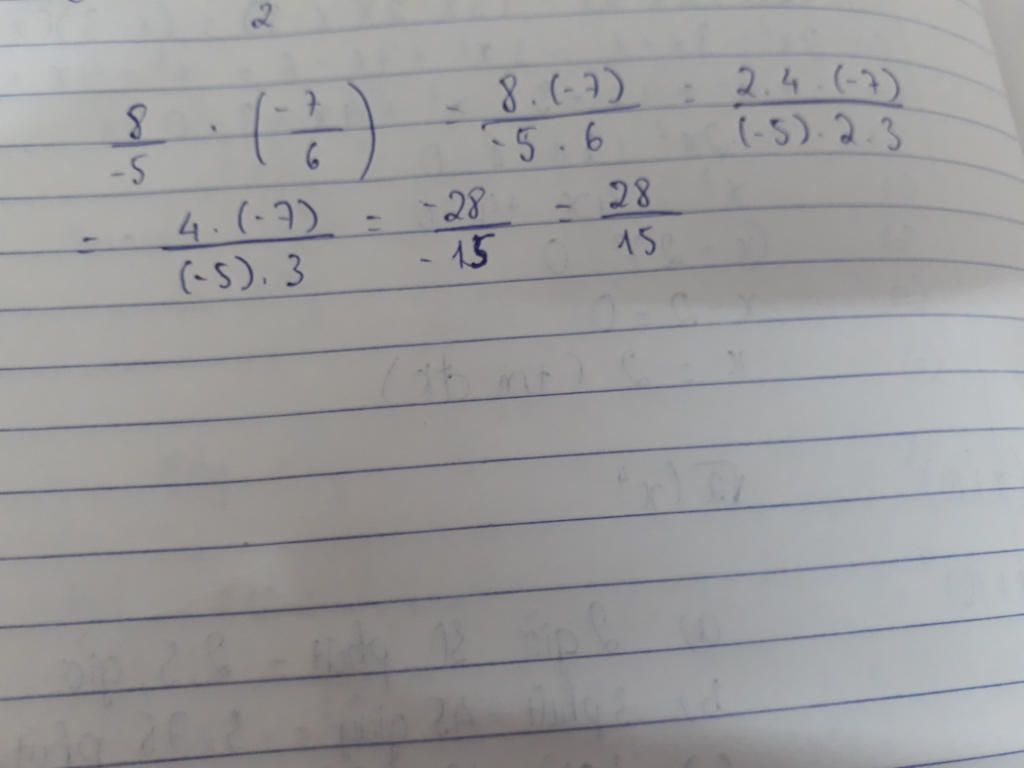 2
8/-5 . (-7/6) = 8.(-7)/-5.6 = 2.4.(-7)/(-5).2.3
= 4.(-7)/(-5).3 = -28/-15 = 28/15